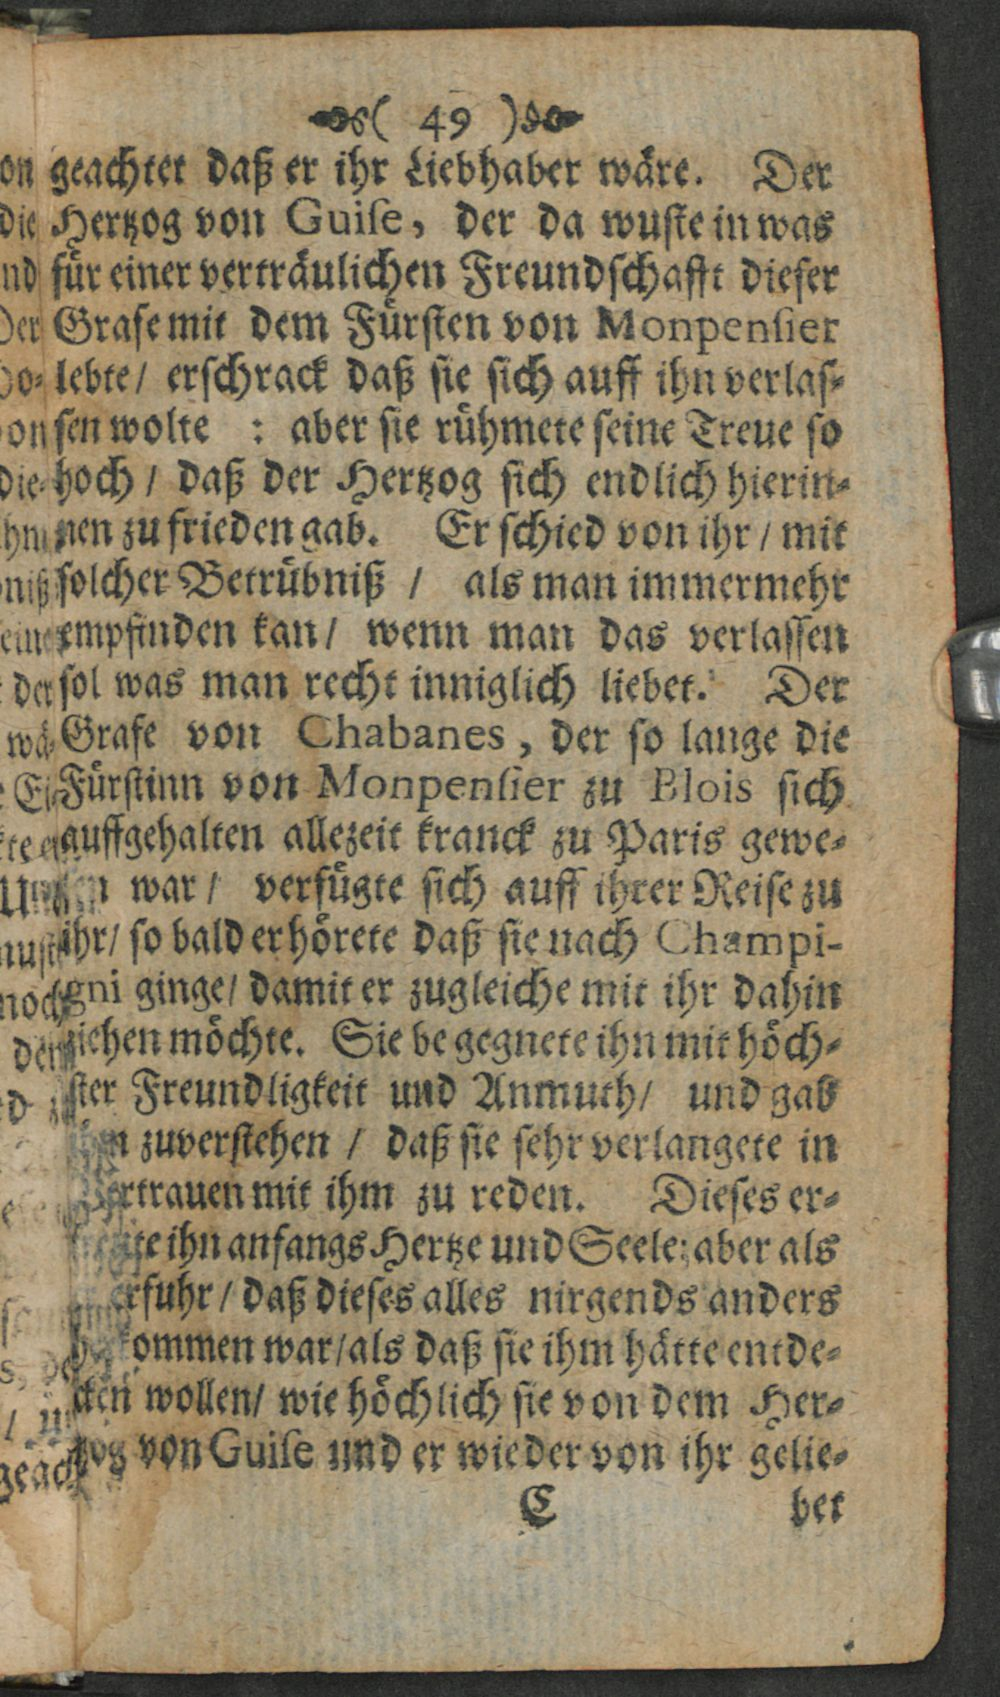 ( 49 )
geachtet daß er ihr Liebhaber wäre. Der
Hertzog von Guiſe, der da wuſte in was
für einer verträulichen Freundſchafft dieſer
Grafe mit dem Fürſten von Monpenſier
lebte/ erſchrack daß ſie ſich auff ihn verlaſ-
ſen wolte : aber ſie rühmete ſeine Treue ſo
hoch / daß der Hertzog ſich endlich hierin-
nen zu frieden gab. Er ſchied von ihr / mit
ſolcher Betrübniß / als man immermehr
empfinden kan/ wenn man das verlaſſen
ſol was man recht inniglich liebet. Der
Grafe von Chabanes, der ſo lange die
Fürſtinn von Monpenſier zu Blois ſich
auffgehalten allezeit kranck zu Paris gewe-
war / verfügte ſich auff ihrer Reiſe zu
ihr/ ſo bald er hörete daß ſie nach Champi-
gni ginge/ damit er zugleiche mit ihr dahin
ziehen möchte. Sie be gegnete ihn mit höch-
ſter Freundligkeit und Anmuth/ und gab
zuverſtehen / daß ſie ſehr verlangete in
Vertrauen mit ihm zu reden. Dieſes er-
ihn anfangs Hertze und Seele; aber als
erfuhr / daß dieſes alles nirgends anders
herkommen war/als daß ſie ihm hätte entde-
cken wollen/ wie höchlich ſie von dem Her-
tzog von Guiſe und er wieder von ihr gelie-
C bet